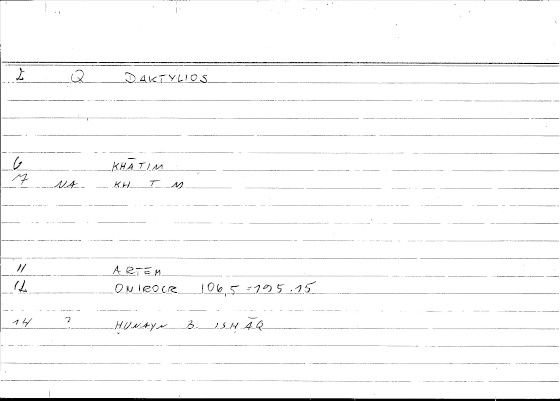 1 Q DAKTYLIOS
6 KHĀTIM
7 NA KH T M
11 ARTEM
12 ONIROCR 106,5 = 195.15
14 ? HUNAYN B. ISHĀQ